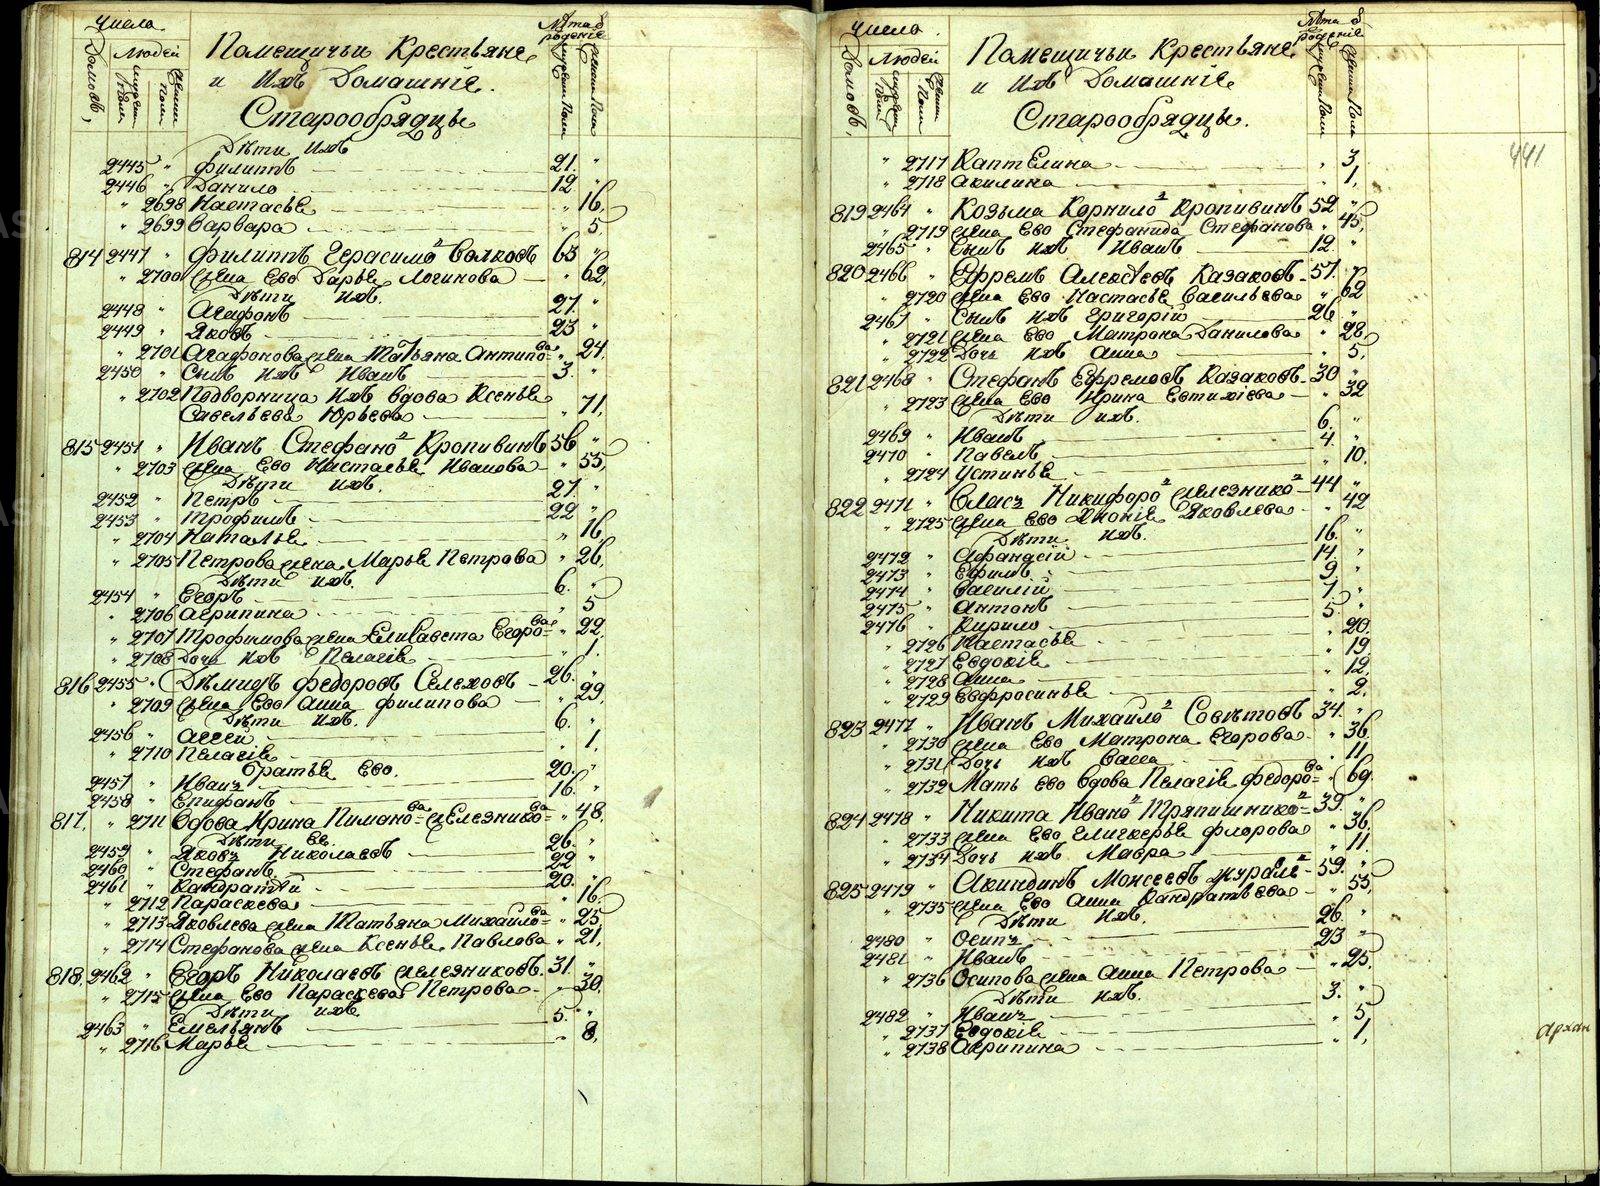 Числа
Домовъ,
Людей
мужеска Полу
женска Полу
Помещичьи Крестьяне
и Ихъ Домашніе.
Старообрядцы
Лѣта отъ рожденія
мужеска Полу
женска Полу
Дѣти ихъ
2445 " Филиппъ 21. "
2446 " Данило 12 "
" 2698 Настасья " 16,
" 2699 Варвара " 5,
814 2447 " Филиппъ Герасимо Волковъ 63 "
" 2700 жена Ево Дарья Логинова " 62,
Дѣти ихъ.
2448 " Агафонъ 27. "
2449 " Яковъ 23 "
" 2701 Агафонова жена Татьяна Антипова " 24,
2450 " Сынъ ихъ Иванъ 3. "
" 2702 Подворница Ихъ вдова Ксенья
Савельева Юрьева " 71,
815 2451 " Иванъ Стефано Кропивинъ 56 "
" 2703 жена Ево Настасья Иванова " 55,
Дѣти ихъ.
2452 " Петръ 27. "
2453 " Трофимъ 22 "
" 2704 Наталья " 16,
" 2705 Петрова жена Марья Петрова " 26,
Дѣти ихъ.
2454 " Егоръ 6. "
" 2706 Агрипина " 5
" 2707 Трофимова жена Елисавета Егорова " 22,
" 2708 Дочь ихъ Пелагія " 1.
816 2455 " Дѣмидъ Федоровъ Селеховъ 26. "
" 2709 жена Ево Анна Филипова " 29,
Дѣти ихъ.
2456 " Алсей 6. "
" 2710 Пелагія " 1,
братья Ево.
2457 " Иванъ 20. "
2458 " Епифанъ 16. "
817. " 2711 Вдова Ирина Пиманова Железникова " 48,
Дѣти Ее.
2459 " Яковъ Николаевъ 26. "
2460 " Стефанъ 22 "
2461 " Кандратій 20. "
" 2712 Параскева " 16,
" 2713 Яковлева жена Татьяна Михайлова " 25,
" 2714 Стефанова жена Ксенья Павлова " 21,
818. 2462 " Егоръ Николаевъ Железниковъ 31. "
" 2715 жена Ево Параскева Петрова " 30.
Дѣти ихъ
2463 " Емельянъ 5. "
" 2716 Марья " 8,
Числа.
Домовъ,
Людей
мужеска Полу
женска Полу
Помещичьи Крестьяне
и Ихъ Домашніе
Старообрядцы.
Лѣта отъ рожденія
мужеска Полу
женска Полу
441
" 2717 Каптелина " 3,
" 2718 Акилина " 1,
819 2464 " Козьма Корнило Кропивинъ 52. "
" 2719 жена Ево Стефанида Стефанова " 45,
2465 " Сынъ ихъ Иванъ 12. "
820 2466 " Ефремъ Алексѣевъ Казаковъ 57. "
" 2720 жена Ево Настасья Васильева " 62
2467 " Сынъ ихъ Григорій 26 "
" 2721 жена Ево Матрона Данилова " 28,
" 2722 Дочь ихъ Анна " 5,
821 2468 " Стефанъ Ефремовъ Казаковъ 30 "
" 2723 жена Ево Ирина Евтихіева " 32
Дѣти ихъ.
2469 " Иванъ 6. "
2470 " Павелъ 4. "
" 2724 Устинья " 10.
822 2471 " Власъ Никифоро Железнико 44 "
" 2725 жена Ево Ѳионія Яковлева " 42
Дѣти ихъ.
2472 " Афанасій 16. "
2473 " Ефимъ 14. "
2474 " Василій 9. "
2475 " Антонъ 7. "
2476 " Кирило 5. "
" 2726 Настасья " 20.
" 2727 Евдокія " 19.
" 2728 Анна " 12,
" 2729 Евфросинья " 2.
823 2477 " Иванъ Михайло Совѣтовъ 34. "
" 2730 жена Ево Матрона Егорова " 36.
" 2731 Дочь ихъ Васса " 11.
" 2732 Мать Ево вдова Пелагія Федорова " 69.
824 2478 " Никита Ивано Тряпишнико 39. "
" 2733 жена Ево Гликерья Флорова " 36.
" 2734 Дочь ихъ Мавра " 11.
825 2479 " Акиндинъ Моисеевъ Журавле 59. "
" 2735 жена Ево Анна Кандратьева " 55,
Дѣти ихъ.
2480 " Осипъ 26. "
2481 " Иванъ 23 "
" 2736 Осипова жена Анна Петрова " 25.
Дѣти ихъ.
2482 " Иванъ 3. "
" 2737 Евдокія " 5
" 2738 Агрипина " 1,
Архан